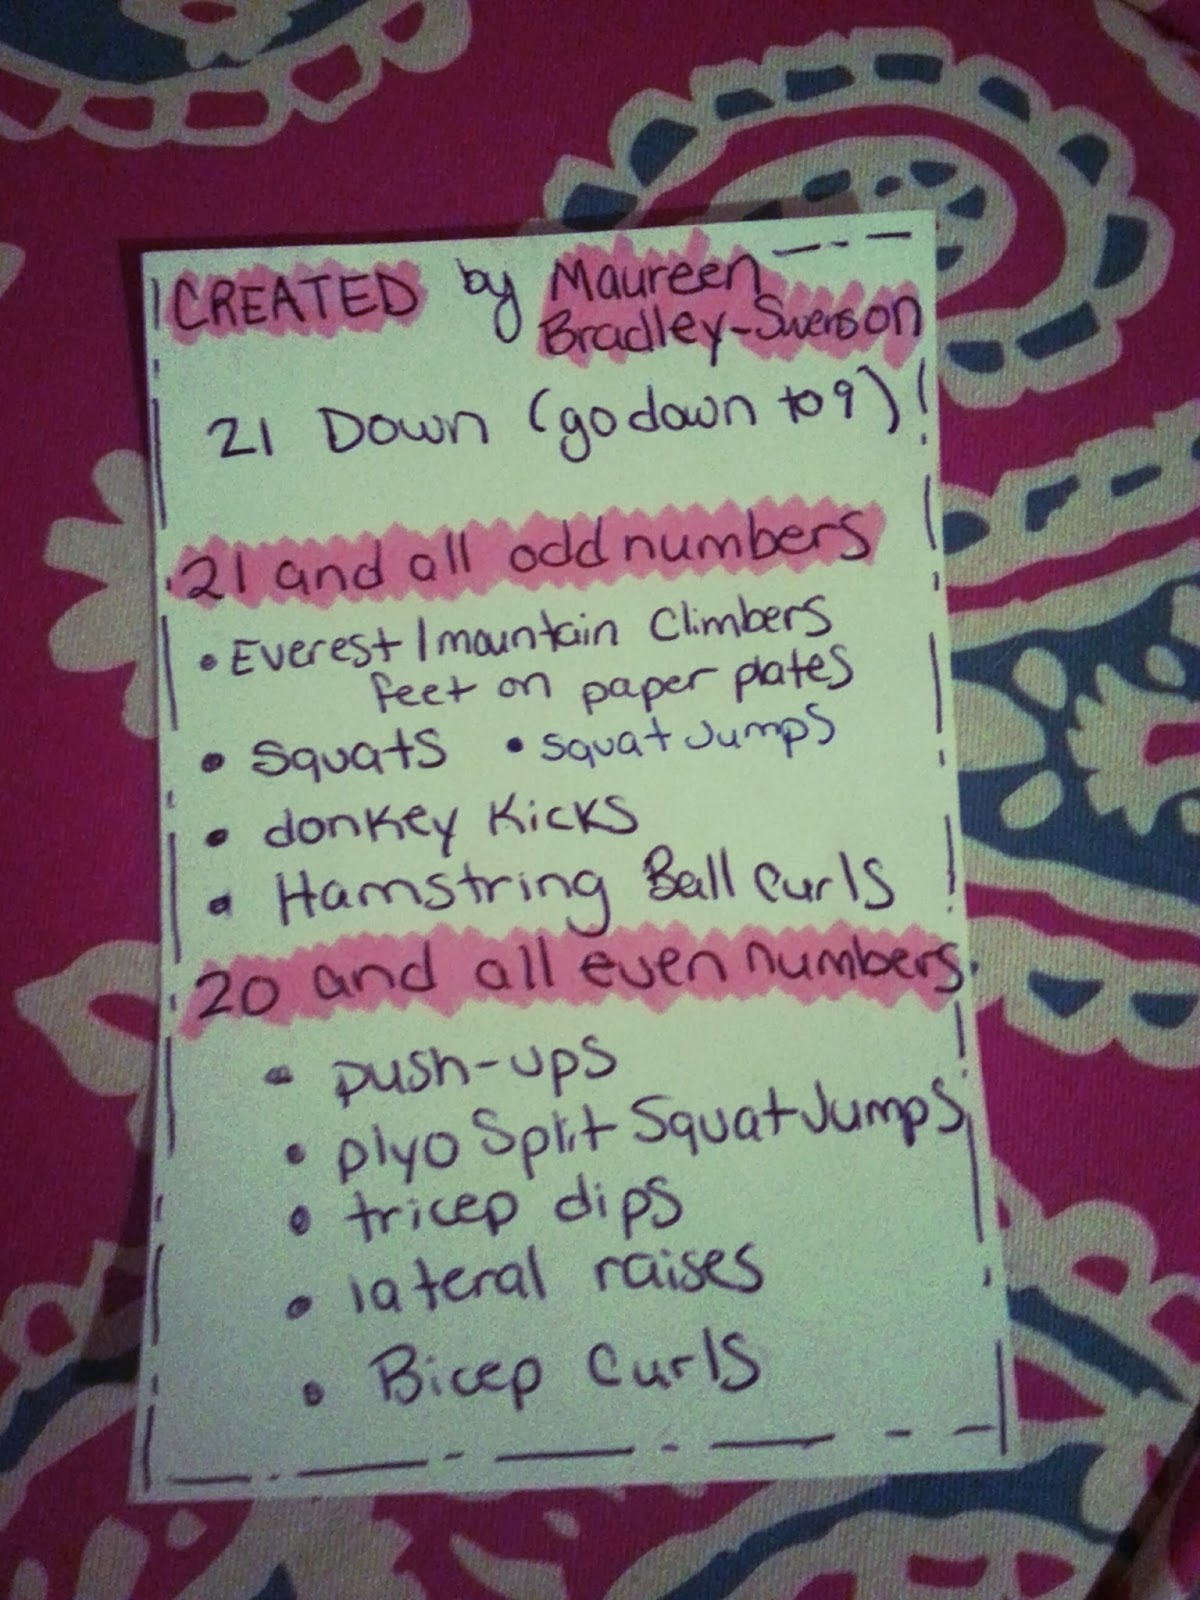 CREATED by Maureen
Bradley-Swenson
21 Down (go down to 9)
21 and all odd numbers
• Everest/mountain Climbers
feet on paper plates
• Squats • squat Jumps
• donkey Kicks
• Hamstring Ball Curls
20 and all even numbers
• push-ups
• plyo Split Squat Jumps
• tricep dips
• lateral raises
• Bicep Curls